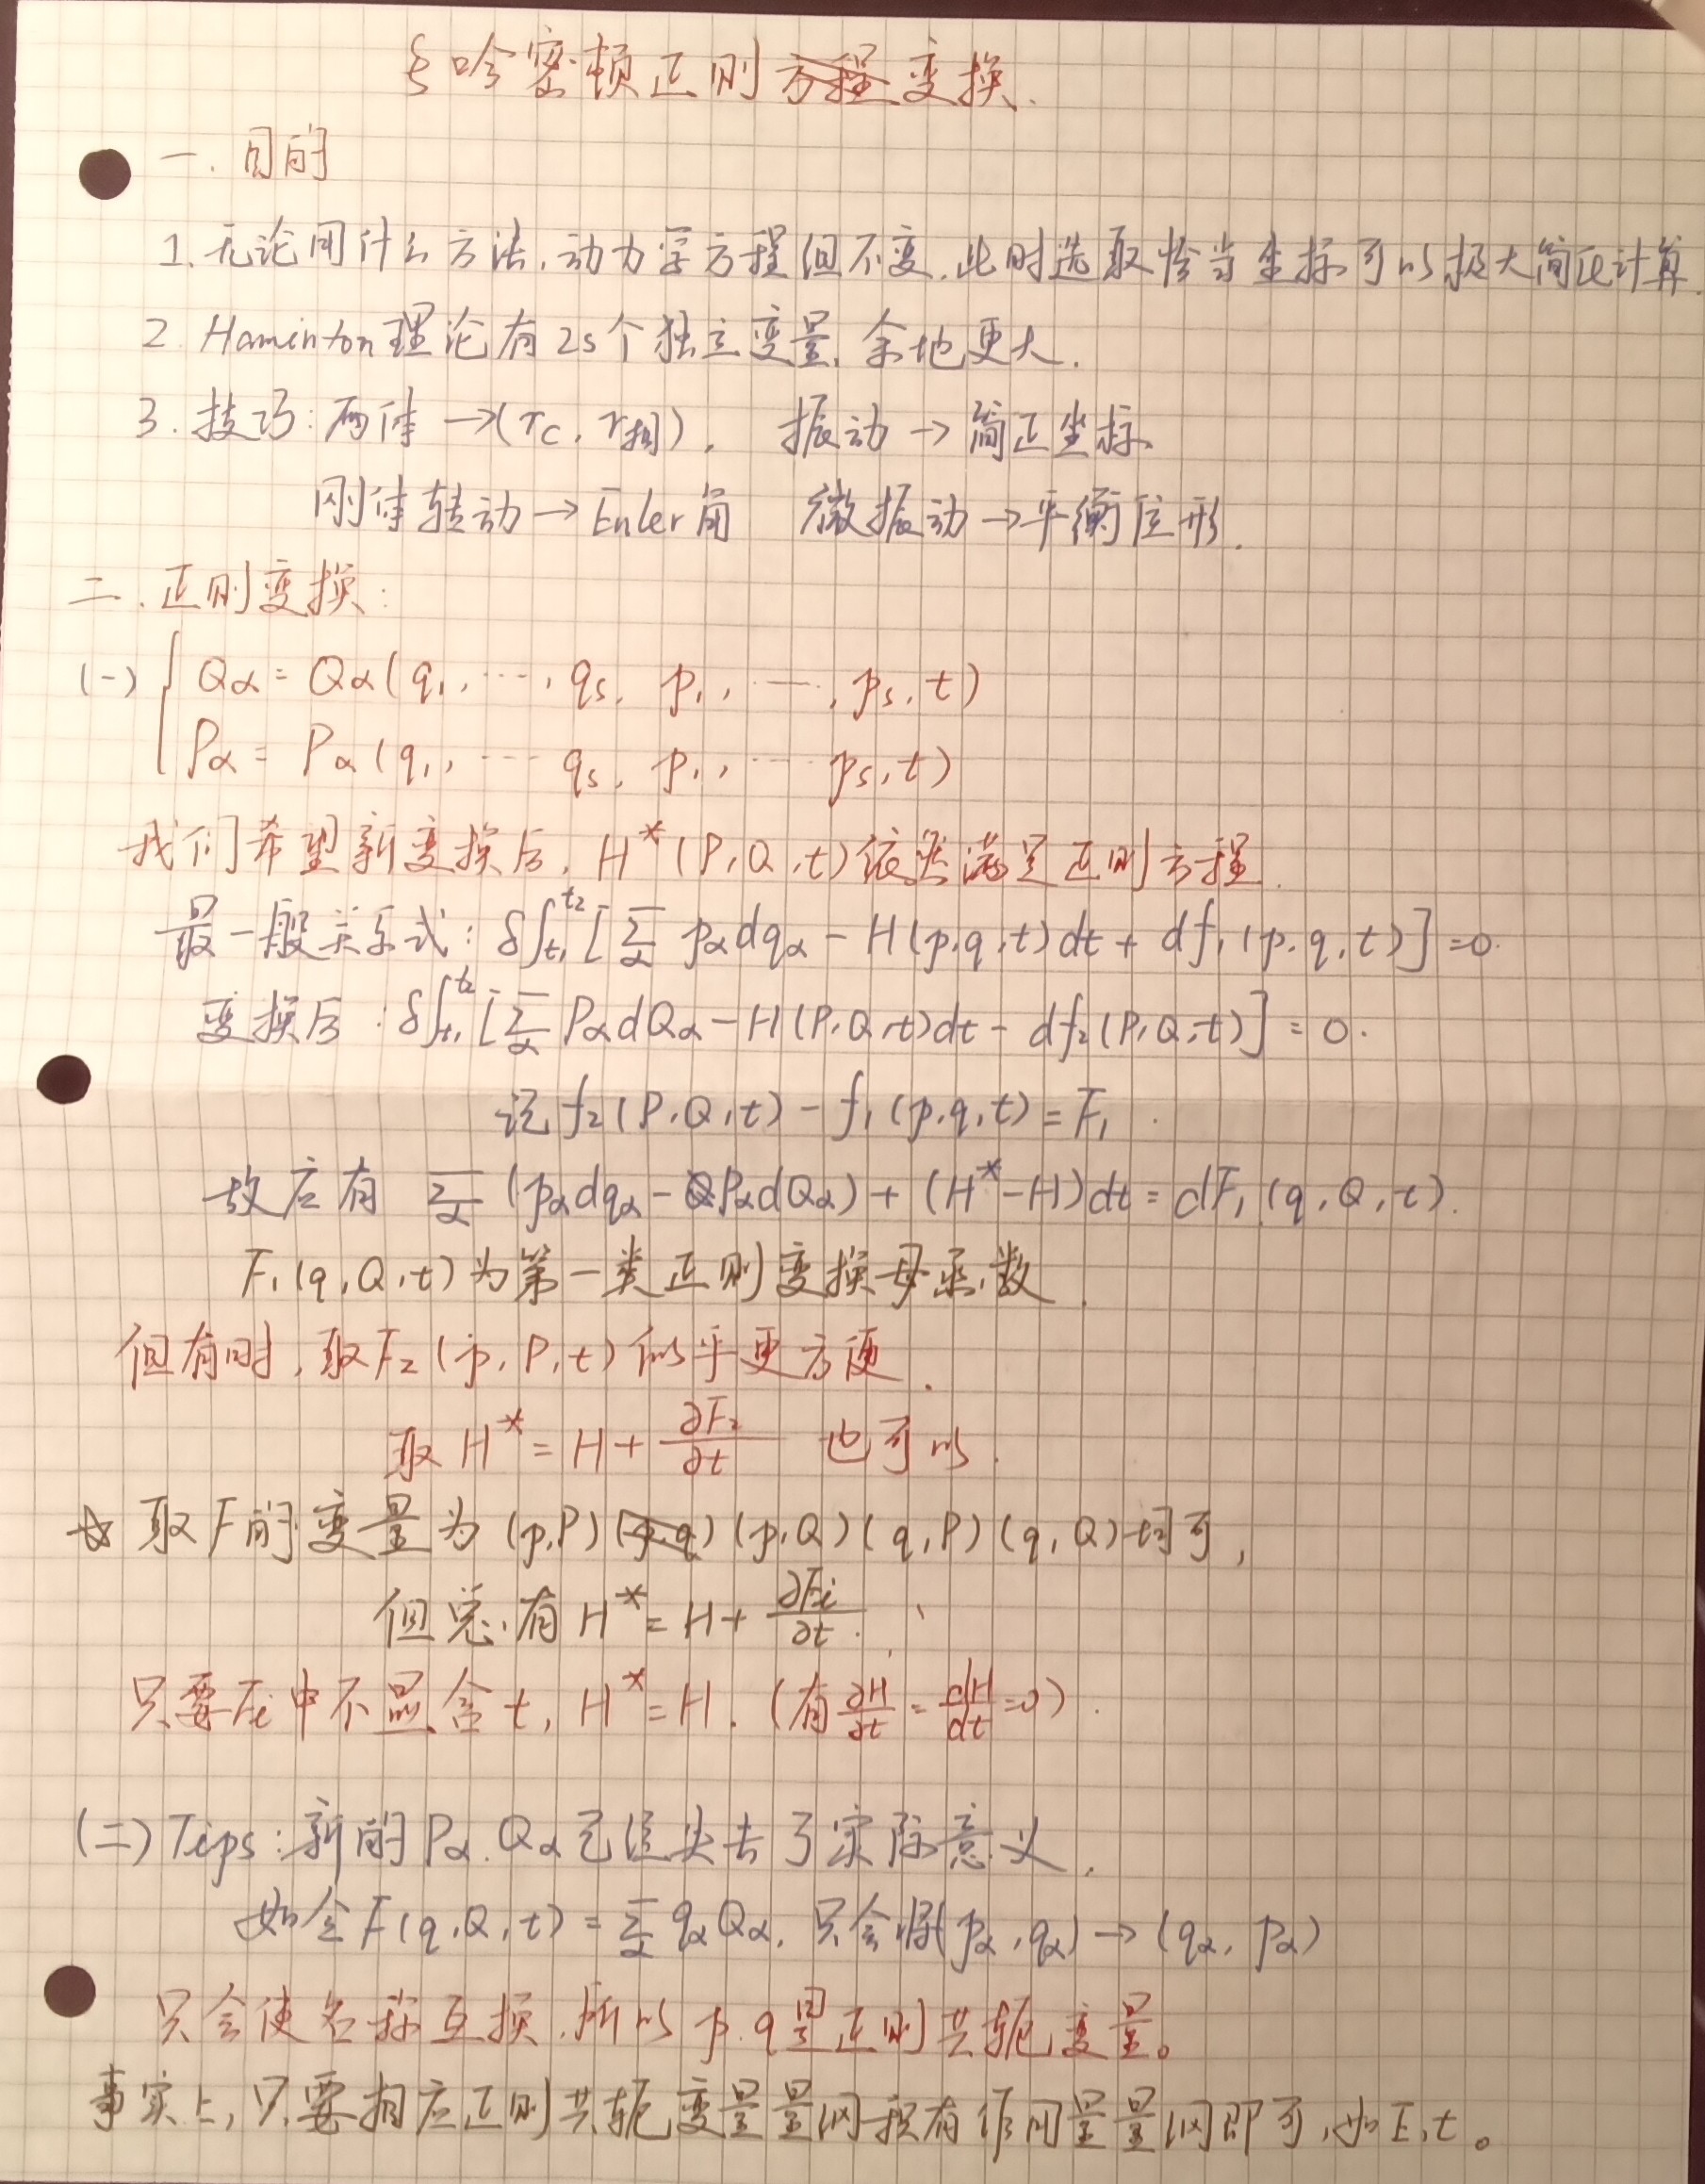 §哈密顿正则方程变换.
一. 目的
1. 无论用什么方法,动力学方程但不变.此时选取恰当坐标可以极大简化计算.
2. Haminton理论有2s个独立变量,余地更大.
3. 技巧:两体→(r_C, r_相), 振动→简正坐标.
刚体转动→Euler角 微振动→平衡位形.
二. 正则变换:
(一) { Qα = Qα(q₁,…,qs, p₁,…,ps,t)
Pα = Pα(q₁,…qs, p₁,…ps,t)
我们希望新变换后, H*(P,Q,t)依然满足正则方程.
最一般关系式: δ∫_{t₁}^{t₂}[∑_α pα dqα − H(p,q,t)dt + df₁(p,q,t)]=0.
变换后: δ∫_{t₁}^{t₂}[∑_α Pα dQα − H(P,Q,t)dt − df₂(P,Q,t)] = 0.
记 f₂(P,Q,t) − f₁(p,q,t) = F₁.
故应有 ∑_α (pα dqα − Pα dQα) + (H*−H)dt = dF₁(q,Q,t).
F₁(q,Q,t)为第一类正则变换母函数.
但有时,取F₂(p,P,t)似乎更方便.
取 H* = H + ∂F₂/∂t 也可以.
☆ 取F的变量为 (p,P) (p,q) (p,Q) (q,P) (q,Q)均可,
但总有 H* = H + ∂Fi/∂t.
只要Fi中不显含t, H* = H. (有∂H/∂t = dH/dt =0).
(二) Tips:新的Pα,Qα已经失去了实际意义.
如令F(q,Q,t) = ∑_α qαQα, 只会将(pα,qα)→(qα, pα)
只会使名称互换.所以 p.q是正则共轭变量。
事实上,只要相应正则共轭变量量纲积有作用量量纲即可,如E,t。